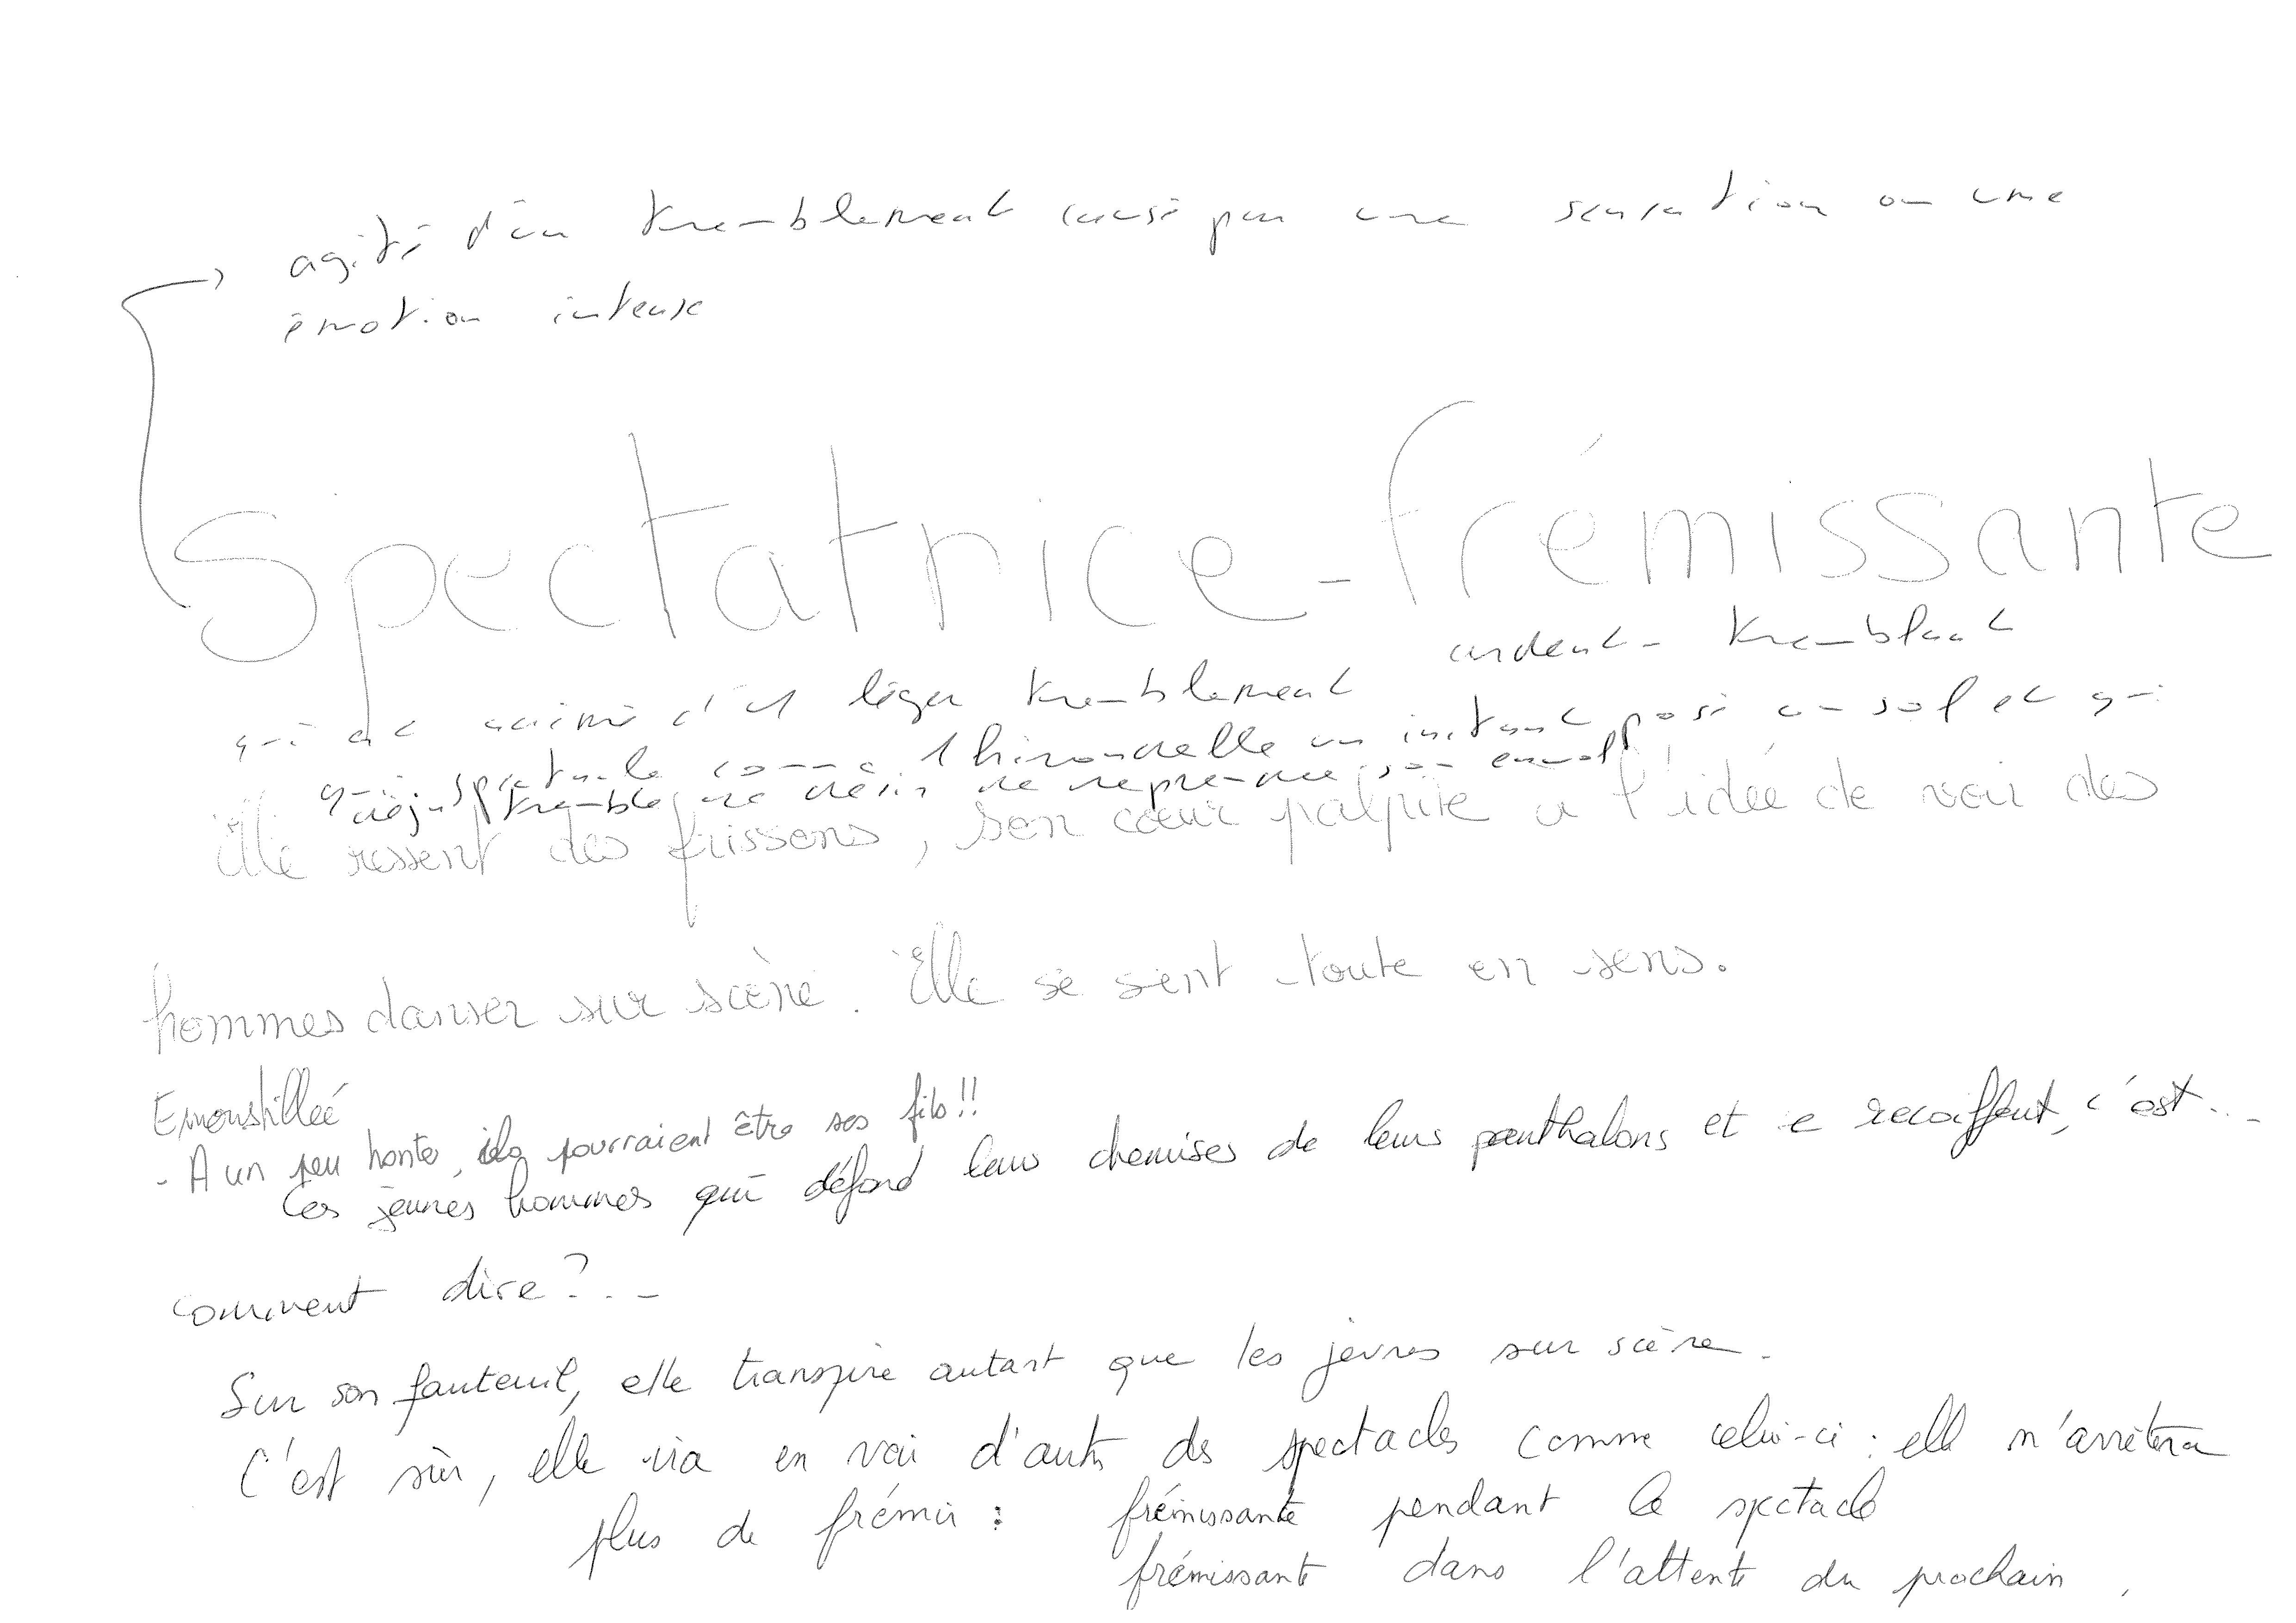 agité d'un tremblement causé par une sensation ou une
émotion intense
Spectatrice-frémissante
ardent - tremblant
qui est animé d'un léger tremblement
comme l'hirondelle un instant posé au sol et qui
déjà tremble de désir de reprendre son envol
Elle ressent des frissons, son cœur palpite a l'idée de voir des
hommes danser sur scène. Elle se sent toute en sens.
Emoustilleé
- A un peu honte, ils pourraient être ses fils!!
Ces jeunes hommes qui défond leur chemises de leurs panthalons et se recoiffent, c'est...
comment dire?...
Sur son fauteuil, elle transpire autant que les jeunes sur scène.
C'est sûr, elle ira en voir d'autres des spectacles comme celui-ci : elle n'arrêtera
plus de frémir : frémissante pendant le spectacle
frémissante dans l'attente du prochain.